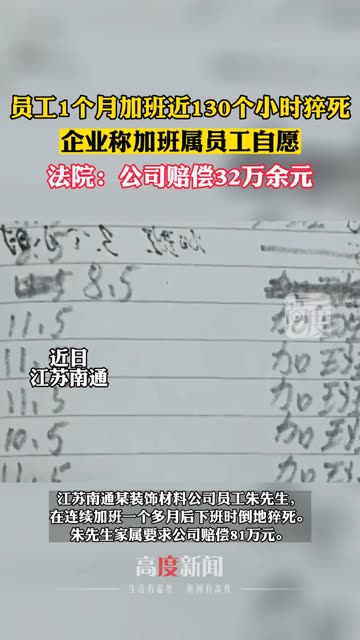 员工1个月加班近130个小时猝死
企业称加班属员工自愿
法院：公司赔偿32万余元
8.5
11.5 加班
11.5 加班
11.5 加班
10.5 加班
11.5 加班
高度
近日
江苏南通
江苏南通某装饰材料公司员工朱先生，
在连续加班一个多月后下班时倒地猝死。
朱先生家属要求公司赔偿81万元。
高度新闻
生活有温度 新闻有高度